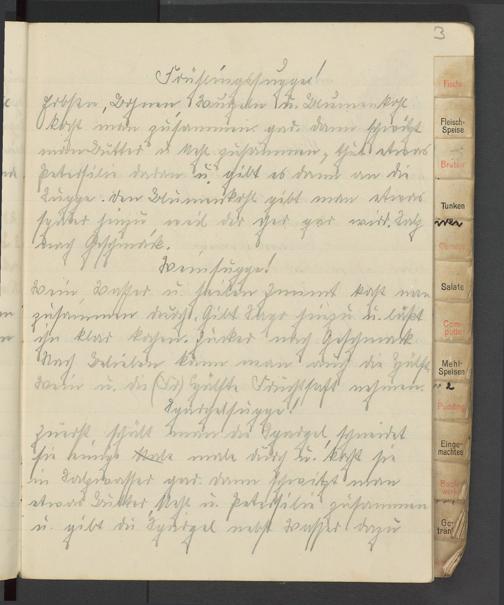 3
Frühlingssuppe!
Erbsen, Bohnen, Wurzeln u. Blumenkohl
kocht man zusammen gar dann schwitzt
man Butter u. Mehl zusammen, thut etwas
Petersilie daran u. gibt es dann an die
Suppe. Den Blumenkohl gibt man etwas
später hinzu, weil der eher gar wird. Salz
nach Geschmack.
Weinsuppe!
Wein, Wasser u. Zimmt kocht man
zusammen durch. Gibt Sago hinzu u. läßt
ihn klar kochen. Zucker nach Geschmack
Nach Belieben kann man auch die Hälfte
Wein u. die Hälfte Fruchtsaft nehmen.
Spargelsuppe!
Zuerst schält man die Spargel, schneidet
sie einige male durch u. kocht sie
in Salzwasser gar. dann schwitzt man
etwas Butter, Mehl u. Petersilie zusammen
u. gibt die Spargel nebst Wasser dazu
Fische
Fleisch-
Speise
Braten
Tunken
Gemüse
Salate
Com-
potte
Mehl-
Speisen
Pudding
Einge-
machtes
Back-
werk
Ge-
tränke